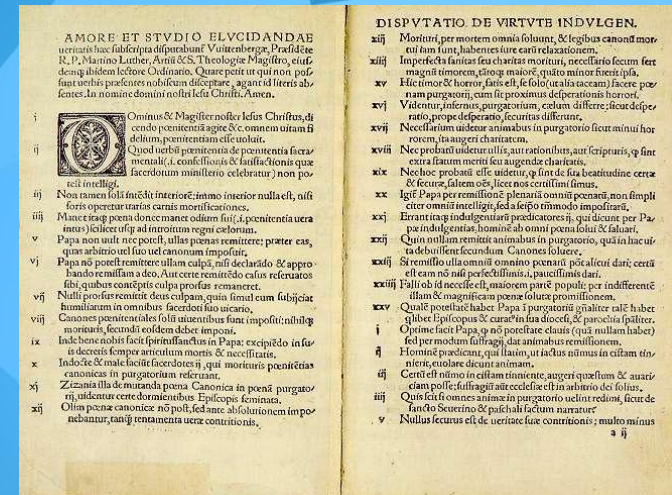 AMORE ET STVDIO ELVCIDANDAE
ueritatis hæc subscripta disputabunť Vuittenbergæ, Præsidēte
R. P. Martino Luther, Artiū & S. Theologiæ Magistro, eius
demq; ibidem lectore Ordinario. Quare petit ut qui non pos
sunt uerbis præsentes nobiscum disceptare, agant id literis ab
sentes. In nomine domini nostri Iesu Christi. Amen.
i Dominus & Magister noster Iesus Christus, di
cendo pœnitentiā agite &c. omnem uitam fi
delium, pœnitentiam esse uoluit.
ij Quod uerbū pœnitentia de pœnitentia sacra
mentali (.i. confessionis & satisfactionis quæ
sacerdotum ministerio celebratur) non po
test intelligi.
iij Non tamen solā intēdit interiorē: immo interior nulla est, nisi
foris operetur uarias carnis mortificationes.
iiij Manet itaq; pœna donec manet odium sui (.i. pœnitentia uera
intus) scilicet usq; ad introitum regni cælorum.
v Papa non uult nec potest, ullas pœnas remittere; præter eas,
quas arbitrio uel suo uel canonum imposuit.
vj Papa nō potest remittere ullam culpā, nisi declarādo & appro
bando remissam a deo. Aut certe remittēdo casus reseruatos
sibi, quibus contēptis culpa prorsus remaneret.
vij Nulli prorsus remittit deus culpam, quin simul eum subijciat
humiliatum in omnibus sacerdoti suo uicario.
viij Canones pœnitentiales solū uiuentibus sunt impositi; nihilq;
morituris, secundū eosdem debet imponi.
ix Inde bene nobis facit spiritussanctus in Papa; excipiēdo in su
is decretis semper articulum mortis & necessitatis.
x Indocte & male faciūt sacerdotes ij, qui morituris pœnitētias
canonicas in purgatorium reseruant.
xj Zizania illa de mutanda pœna Canonica in pœnā purgato
rij, uidentur certe dormientibus Episcopis seminata.
xij Olim pœnæ canonicæ nō post, sed ante absolutionem impo
nebantur, tanq; tentamenta ueræ contritionis.
DISPVTATIO DE VIRTVTE INDVLGEN.
xiij Morituri, per mortem omnia soluunt, & legibus canonū mor
tui iam sunt, habentes iure earū relaxationem.
xiiij Imperfecta sanitas seu charitas morituri, necessario secum fert
magnū timorem, tātoq; maiorē, quāto minor fuerit ipsa.
xv Hic timor & horror, satis est, se solo (ut alia taceam) facere pœ
nam purgatorij, cum sit proximus desperationis horrori.
xvj Videntur, infernus, purgatorium, cælum differre; sicut despe
ratio, prope desperatio, securitas differunt.
xvij Necessarium uidetur animabus in purgatorio sicut minui hor
rorem, ita augeri charitatem.
xviij Nec probatū uidetur ullis, aut rationibus, aut scripturis, q sint
extra statum meriti seu augendæ charitatis.
xix Nec hoc probatū esse uidetur, q sint de sua beatitudine certæ
& securæ, saltem oēs, licet nos certissimi simus.
xx Igit̃ Papa per remissionē plenariā omniū pœnarū, non simpli
citer omniū intelligit, sed a seipso tm̄modo impositarū.
xxj Errant itaq; indulgentiarū prædicatores ij, qui dicunt per Pa
pæ indulgentias, hominē ab omni pœna solui & saluari.
xxij Quin nullam remittit animabus in purgatorio, quā in hac ui
ta debuissent secundum Canones soluere.
xxiij Si remissio ulla omniū omnino pœnarū pōt alicui dari; certū
est eam nō nisi perfectissimis .i. paucissimis dari.
xxiiij Falli ob id necesse est, maiorem partē populi; per indifferentē
illam & magnificam pœnæ solutæ promissionem.
xxv Qualē potestatē habet Papa ī purgatoriū gn̄aliter talē habet
quilibet Episcopus & curat9 in sua diocesi, & parochia spāliter.
i Optime facit Papa, q nō potestate clauis (quā nullam habet)
sed per modum suffragij, dat animabus remissionem.
ij Hominē prædicant, qui statim, ut iactus nūmus in cistam tin
nierit, euolare dicunt animam.
iij Certū est nūmo in cistam tinniente, augeri quæstum & auari
ciam posse; suffragiū aūt ecclesiæ est in arbitrio dei solius.
iiij Quis scit si omnes animæ in purgatorio uelint redimi, sicut de
sancto Seuerino & paschali factum narratur?
v Nullus securus est de ueritate suæ contritionis; multo minus
a ij